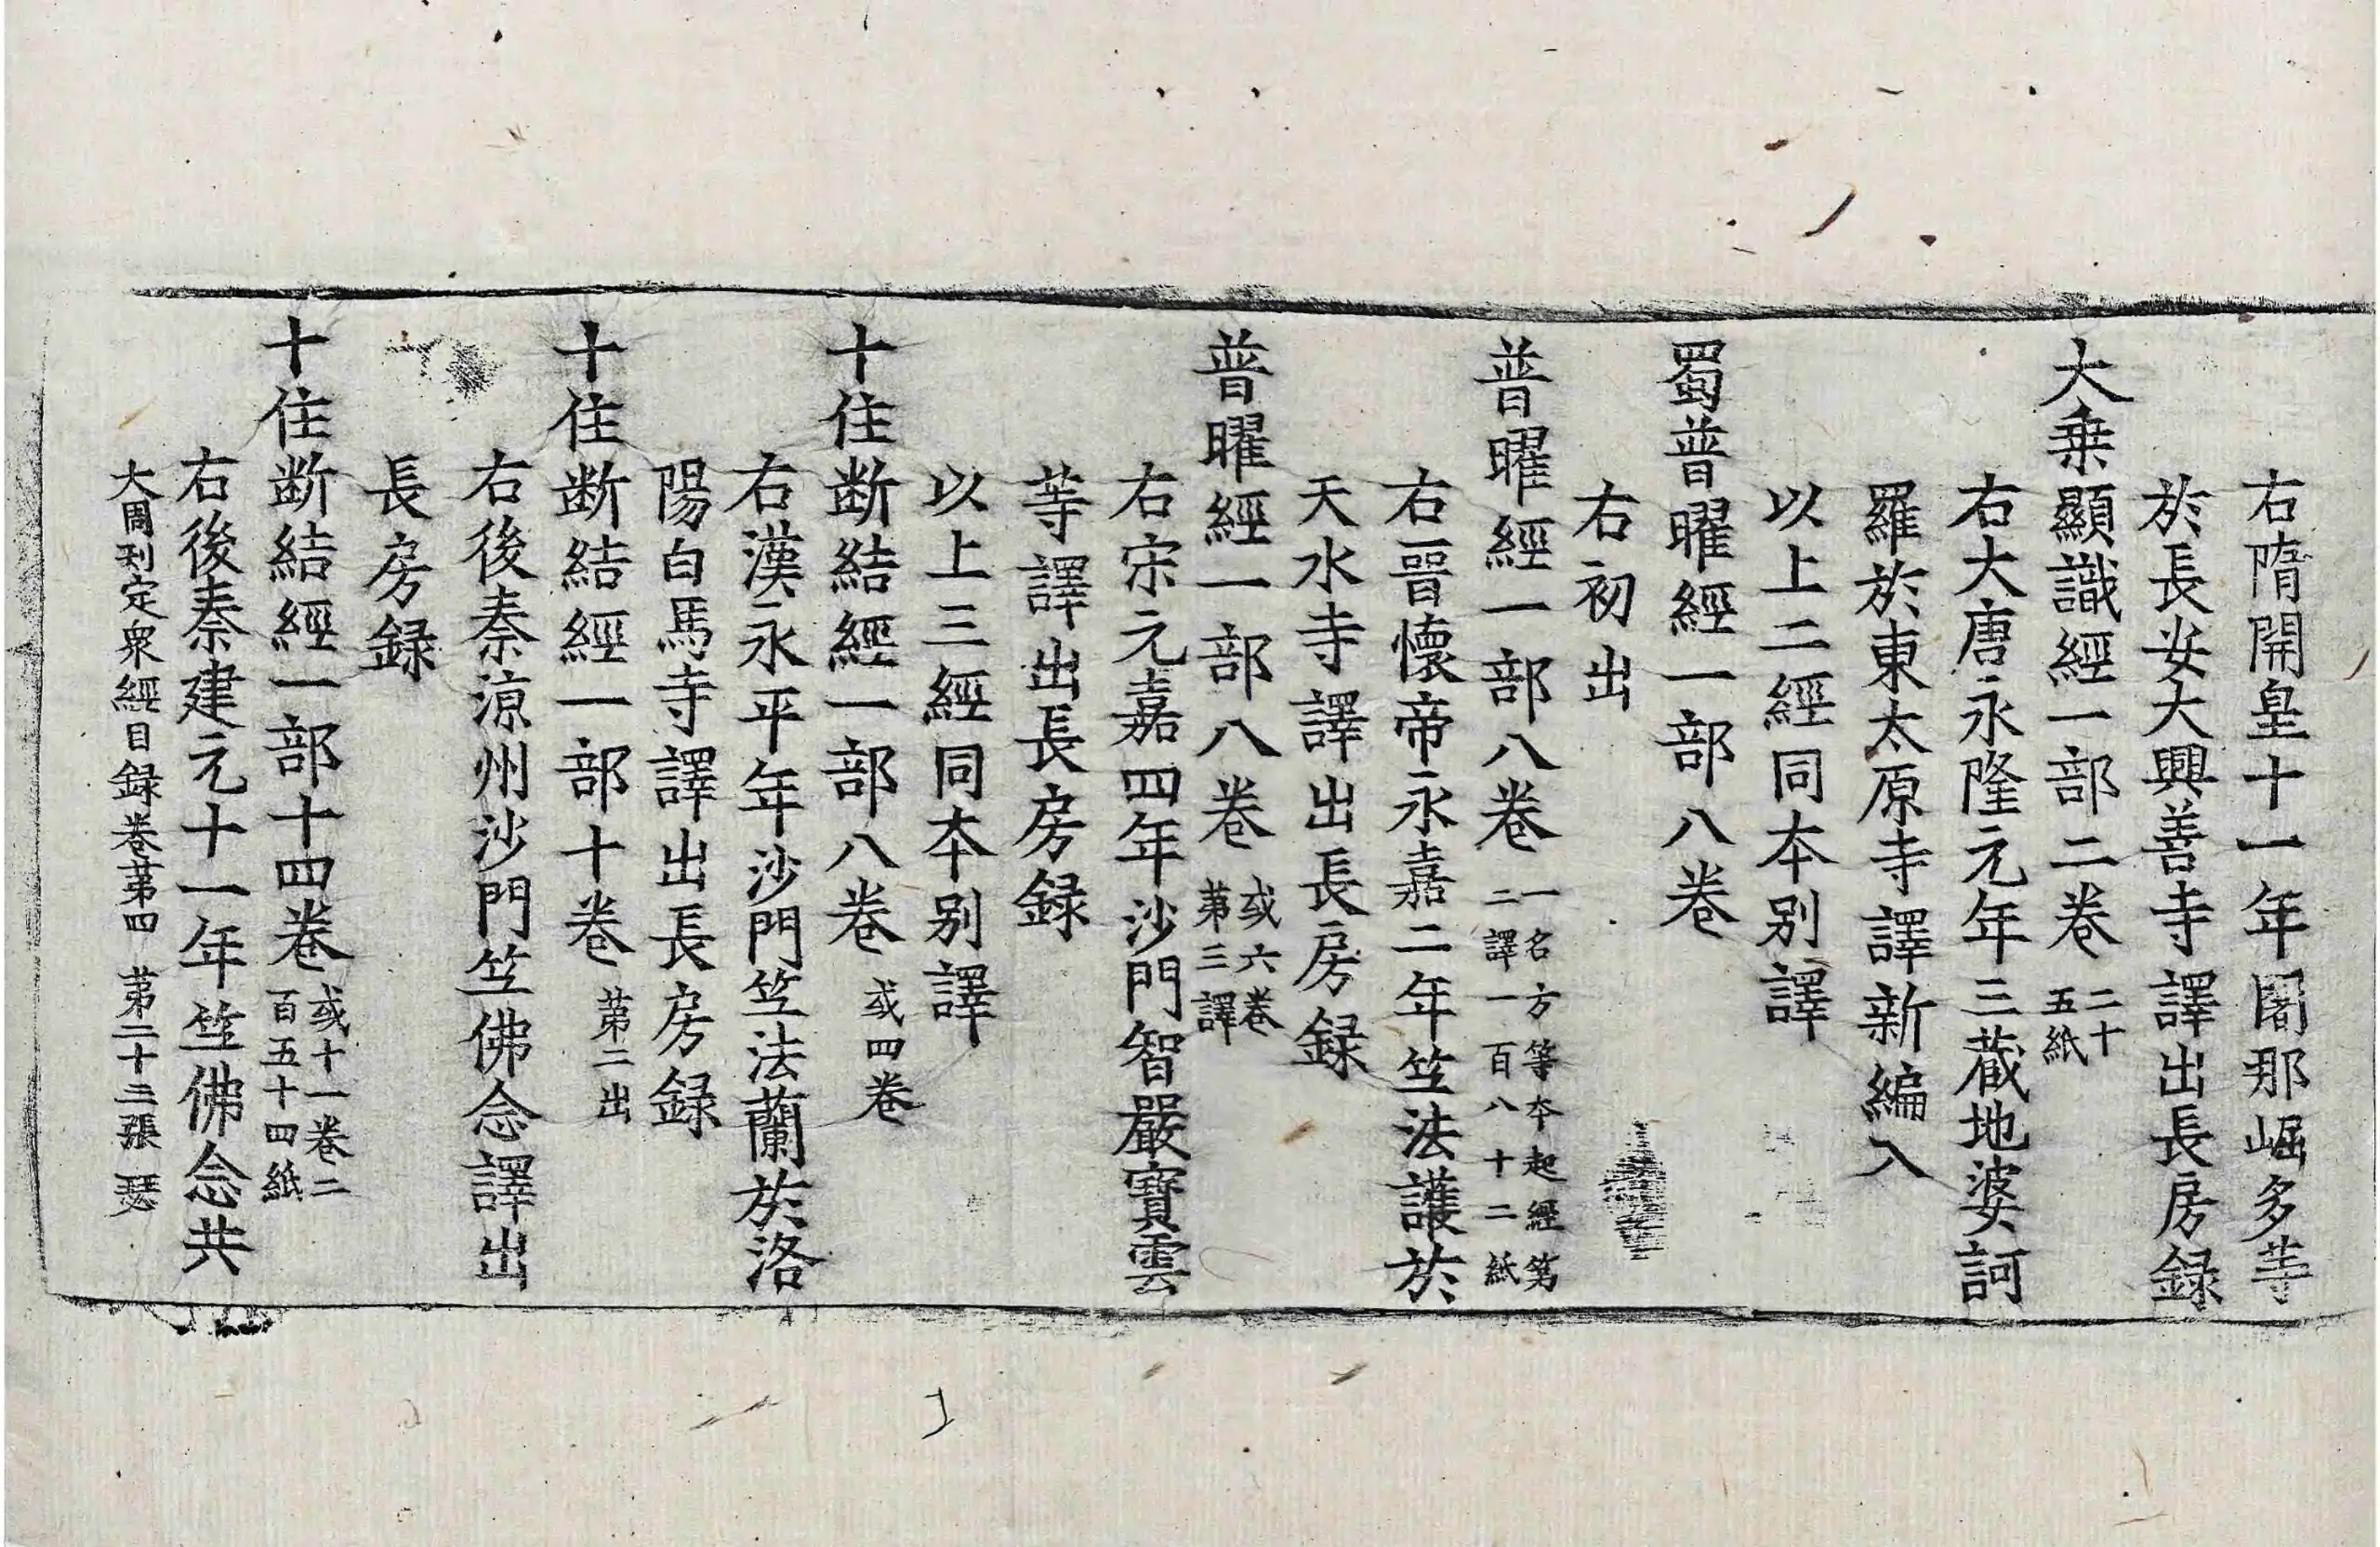 右隋開皇十一年闍那崛多等
於長安大興善寺譯出長房録
大乗顯識經一部二卷二十五紙
右大唐永隆元年三藏地婆訶
羅於東太原寺譯新編入
以上二經同夲别譯
蜀普曜經一部八卷
右初出
普曜經一部八卷一名方等夲起經第二譯一百八十二紙
右晉懷帝永嘉二年竺法護於
天水寺譯出長房録
普曜經一部八卷或六卷第三譯
右宋元嘉四年沙門智嚴寶雲
等譯出長房録
以上三經同夲别譯
十住断結經一部八卷或四卷
右漢永平年沙門竺法蘭於洛
陽白馬寺譯出長房録
十住断結經一部十卷第二出
右後秦涼州沙門竺佛念譯出
長房録
十住断結經一部十四卷或十一卷二百五十四紙
右後秦建元十一年竺佛念共
大周刊定衆經目録卷第四 第二十三張 瑟